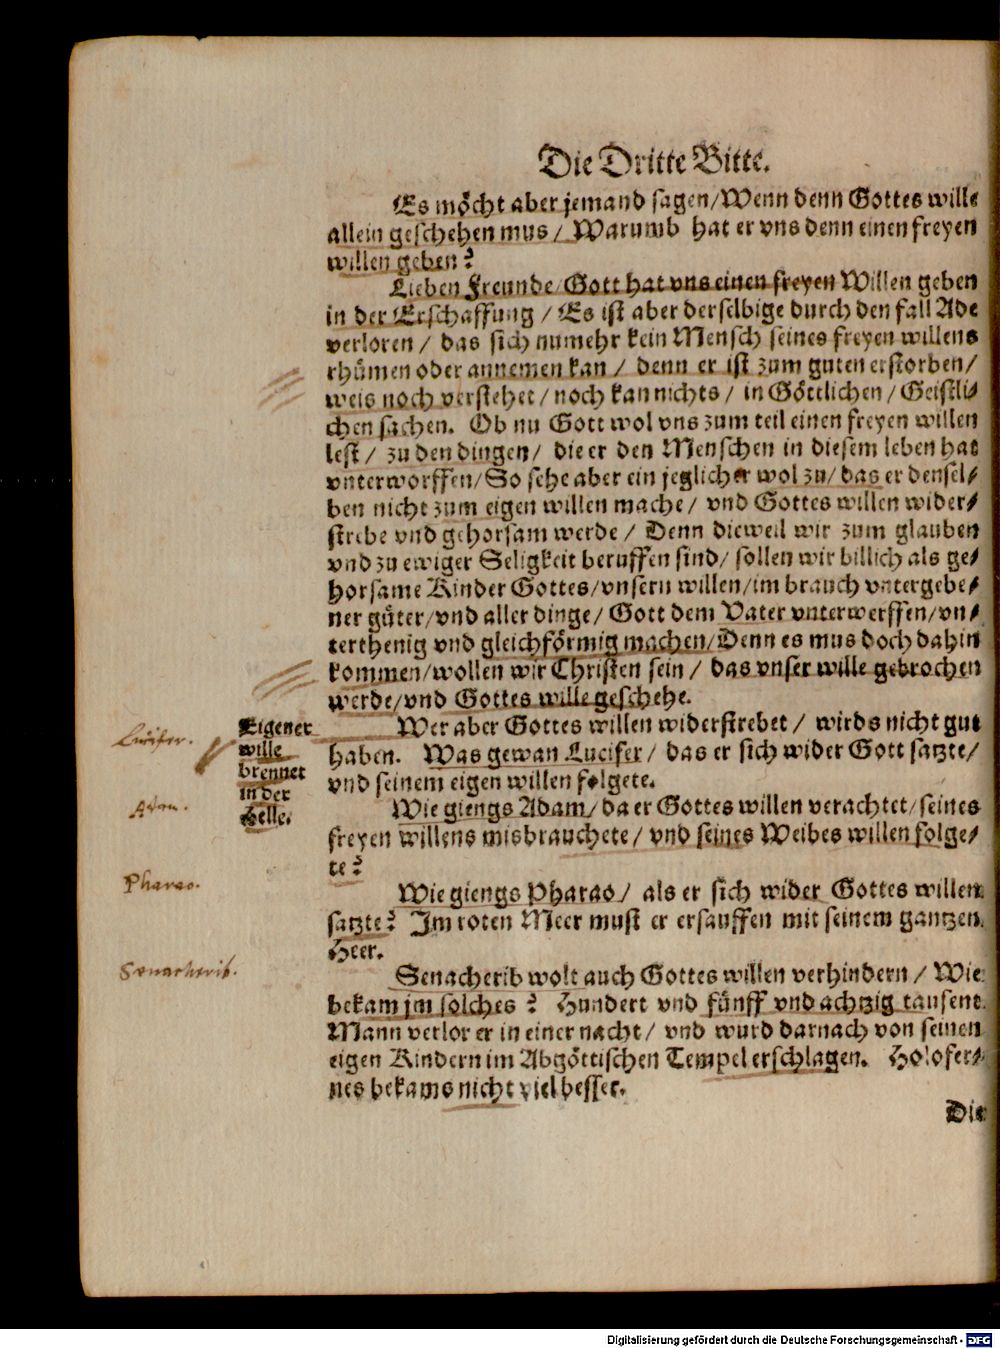 Die Dritte Bitte.
Es möcht aber jemand sagen/Wenn denn Gottes wille
allein geschehen mus/ Warumb hat er vns denn einen freyen
willen geben?
Lieben Freunde/ Gott hat vns einen freyen Willen geben
in der Erschaffung / Es ist aber derselbige durch den fall Ade
verloren / das sich numehr kein Mensch seines freyen willens
rhümen oder annemen kan / denn er ist zum guten erstorben/
weis noch verstehet/ noch kan nichts / in Göttlichen/ Geistli/
chen sachen. Ob nu Gott wol vns zum teil einen freyen willen
lest / zu den dingen/ die er den Menschen in diesem leben hat
vnterworffen/So sehe aber ein jeglicher wol zu/ das er densel/
ben nicht zum eigen willen mache / vnd Gottes willen wider/
strebe vnd gehorsam werde / Denn dieweil wir zum glauben
vnd zu ewiger Seligkeit beruffen sind/ sollen wir billich als ge/
horsame Kinder Gottes/vnsern willen/im brauch vntergebe/
ner güter/vnd aller dinge/ Gott dem Vater vnterwerffen/vn/
terthenig vnd gleichförmig machen/Denn es mus doch dahin
kommen/wollen wir Christen sein / das vnser wille gebrochen
werde/vnd Gottes wille geschehe.
Eigener
wille
brennet
in der
Helle.
Wer aber Gottes willen widerstrebet / wirds nicht gut
haben. Was gewan Lucifer/ das er sich wider Gott satzte/
vnd seinem eigen willen folgete.
Lucifer.
Wie giengs Adam/ da er Gottes willen verachtet/seines
freyen willens misbrauchete/ vnd seines Weibes willen folge/
te?
Adam.
Wie giengs Pharao/ als er sich wider Gottes willen
satzte? Im roten Meer must er ersauffen mit seinem gantzen
Heer.
Pharao.
Senacherib wolt auch Gottes willen verhindern / Wie
bekam jm solches? Hundert vnd fünff vnd achtzig tausent
Mann verlor er in einer nacht/ vnd wurd darnach von seinen
eigen Kindern im Abgöttischen Tempel erschlagen. Holofer/
nes bekams nicht viel besser.
Senacherib.
Die
Digitalisierung gefördert durch die Deutsche Forschungsgemeinschaft - DFG